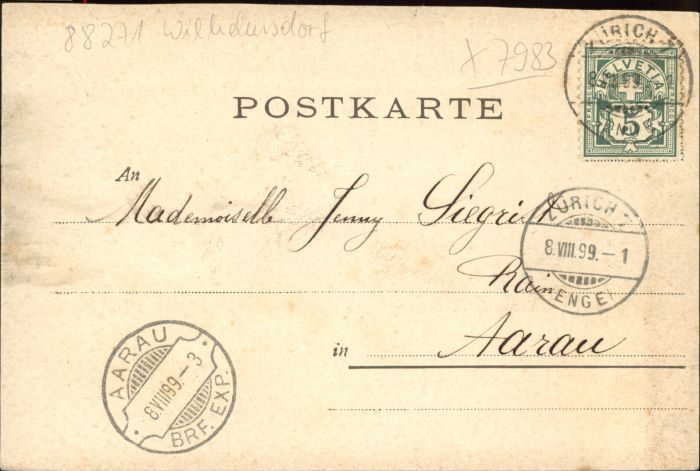 88271 Wilhelmsdorf
X 7983
ZÜRICH
HELVETIA
5
POSTKARTE
An
Mademoiselle Jenny Siegrist
ZÜRICH
8.VIII.99.-1
ENGE
Rain
in Aarau
AARAU
8.VIII.99.-3
BRF. EXP.